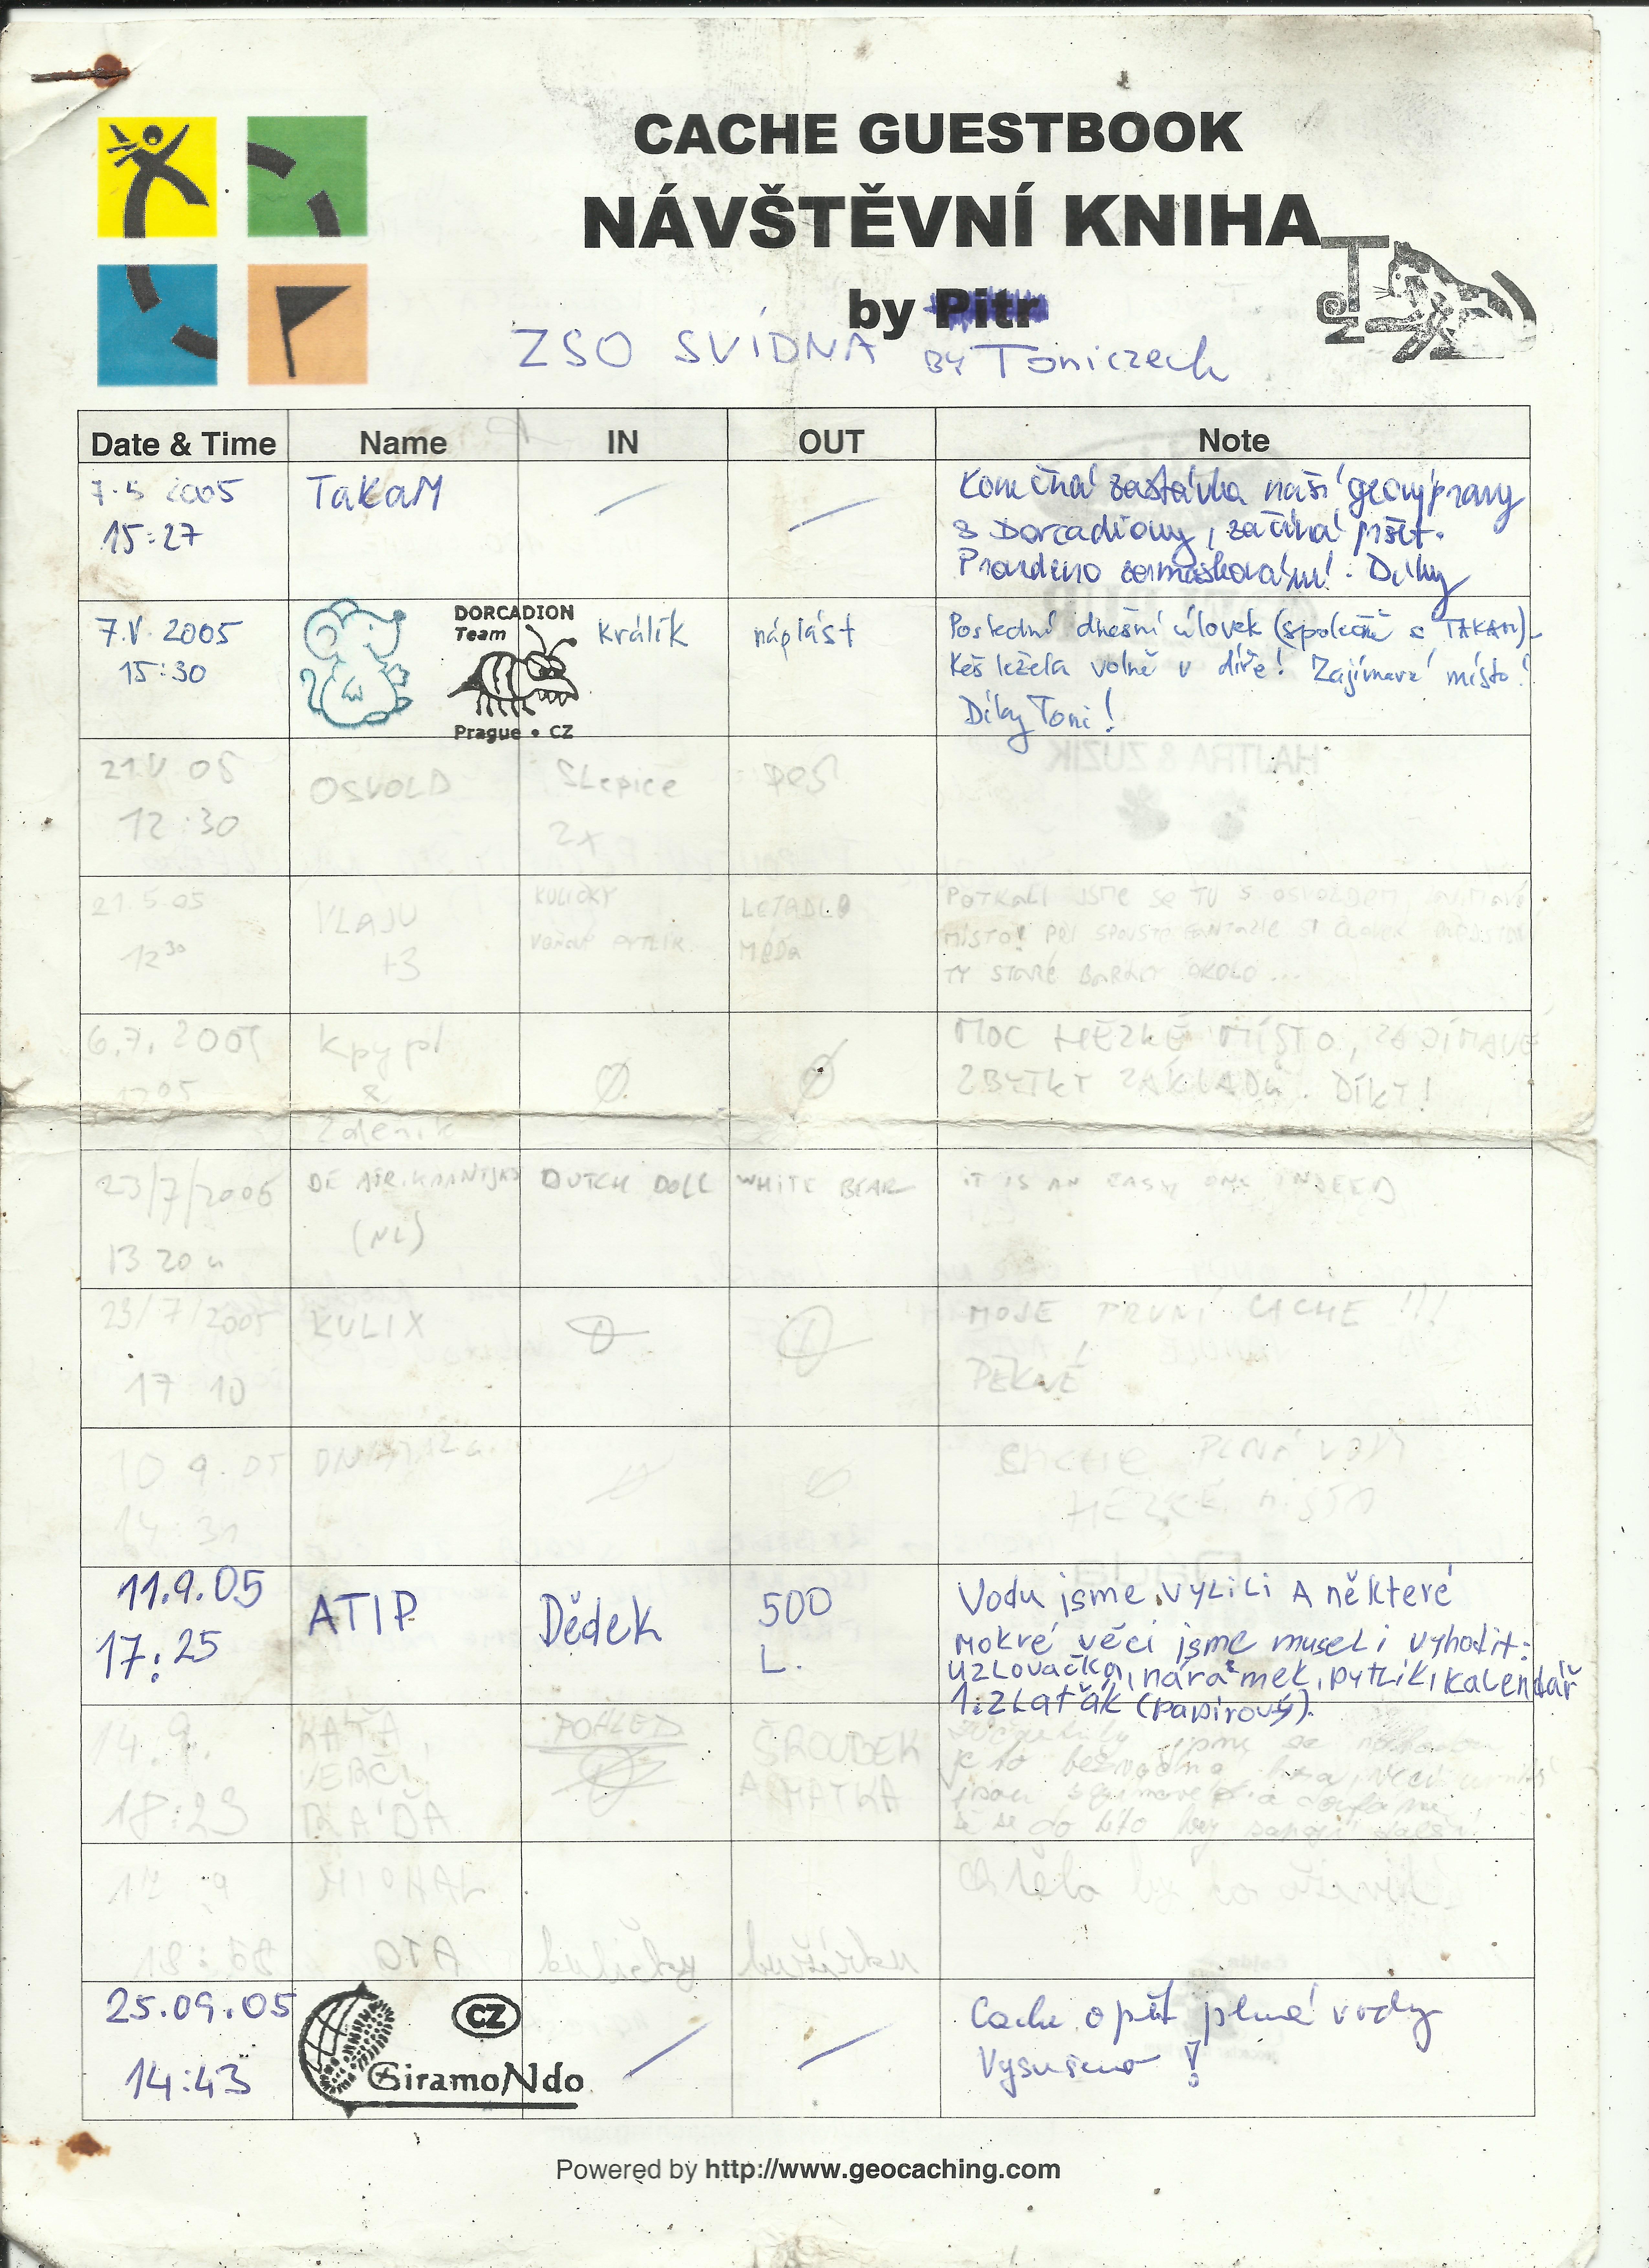 CACHE GUESTBOOK
NÁVŠTĚVNÍ KNIHA
by Pitr
ZSO SVÍDNÁ BY Toniczech
Date & Time Name IN OUT Note
7.5 2005 TaKaM Konečná zastávka naší geovýpravy
15:27 s Dorcadiony, začíná pršet.
Parádní zamaskování! Díky
7.V 2005 DORCADION Team králík náplast Poslední dnešní úlovek (společně s TAKAM)
15:30 Keš ležela volně v díře! Zajímavé místo!
Prague • CZ Díky Toni!
21.V 05 OSVOLD SLepice pes
12:30 2x
21.5.05 VLAJU KULIČKY LETADLO POTKALI JSME SE TU S OSVOLDEM
12 30 +3 PYTLÍK MÉĎA MÍSTO! PŘI SPOUSTĚ FANTAZIE SI ČLOVĚK
TY STARÉ BARÁKY OKOLO...
6.7. 2005 kpypl Ø Ø MOC HEZKÉ MÍSTO, ZAJÍMAVÉ
1205 & ZBYTKY ZÁKLADŮ. DÍKY!
Zdeník
23/7/2005 DE AFRIKAANTJES DUTCH DOLL WHITE BEAR IT IS AN EASY ONE INDEED
13 20 u (NL)
23/7/2005 KULIX MOJE PRVNÍ CACHE !!!
17 10 PĚKNÉ!
10 9.05 PLNÁ VODY
14:31 HEZKÉ MÍSTO
11.9.05 ATIP Dědek 500 Vodu jsme vyLiLi A některé
17:25 L. mokré věci jsme museLi vyhodit:
uzLovačka, náramek, pytLík, kaLendář
1.zLaťák (papírový).
14.9. KAŤA, POHLED ŠROUBEK
18:23 VERČA, A MATKA
RÁĎA
MICHAL Chtělo by to
OTA kuličky
25.09.05 CZ Cache opět plná vody
14:43 GiramoNdo Vysušeno!
Powered by http://www.geocaching.com